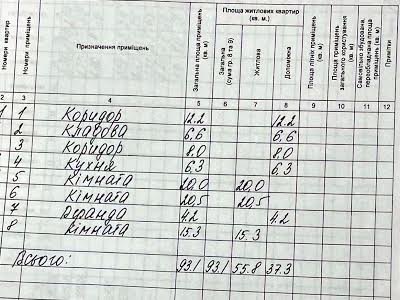 Номери квартир
Номери приміщень
Призначення приміщень
Загальна площа приміщень (кв. м)
Площа житлових квартир (кв. м.)
Загальна (сума гр. 8 та 9)
Житлова
Допоміжна
Площа літніх приміщень (кв. м)
Площа приміщень загального користування (кв. м)
Самовільно збудована, переобладнана площа приміщень (кв. м)
Примітки
2 3 4 5 6 7 8 9 10 11 12
1 1 Коридор 12.2 12.2
2 Кладова 6,6 6,6
3 Коридор 8,0 8,0
4 Кухня 6,3 6,3
5 Кімната 20,0 20,0
6 Кімната 20,5 20,5
7 Веранда 4.2 4.2
8 Кімната 15.3 15.3
Всього: 93.1 93.1 55.8 37.3